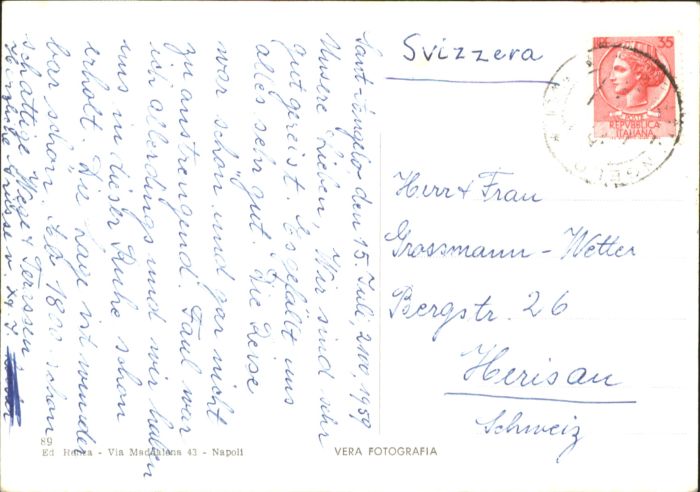 Sant' Angelo, den 15. Juli, 1959
Unsere Lieben, Wir sind sehr
gut gereist. Es gefällt uns
alles sehr gut. Die Reise
war schön und gar nicht
zu anstrengend. Faul war
ich allerdings und wir haben
uns in dieser Ruhe schon
erholt. Die Lage ist wunder
bar schön.
schattige Wege & Terrassen
Herzliche Grüsse v.
Svizzera
LIRE 35
REPVBBLICA
ITALIANA
Herr & Frau
Grossmann - Wetter
Bergstr. 26
Herisau
Schweiz
89
Ed - Via Maddalena 43 - Napoli
VERA FOTOGRAFIA